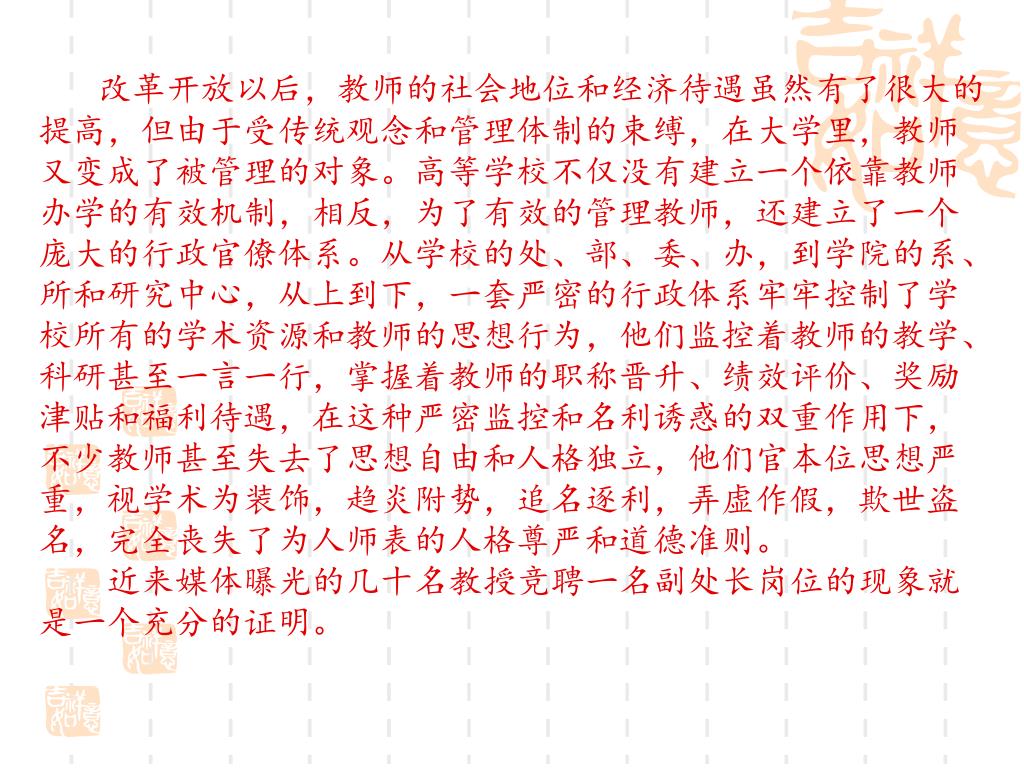 改革开放以后，教师的社会地位和经济待遇虽然有了很大的
提高，但由于受传统观念和管理体制的束缚，在大学里，教师
又变成了被管理的对象。高等学校不仅没有建立一个依靠教师
办学的有效机制，相反，为了有效的管理教师，还建立了一个
庞大的行政官僚体系。从学校的处、部、委、办，到学院的系、
所和研究中心，从上到下，一套严密的行政体系牢牢控制了学
校所有的学术资源和教师的思想行为，他们监控着教师的教学、
科研甚至一言一行，掌握着教师的职称晋升、绩效评价、奖励
津贴和福利待遇，在这种严密监控和名利诱惑的双重作用下，
不少教师甚至失去了思想自由和人格独立，他们官本位思想严
重，视学术为装饰，趋炎附势，追名逐利，弄虚作假，欺世盗
名，完全丧失了为人师表的人格尊严和道德准则。
近来媒体曝光的几十名教授竞聘一名副处长岗位的现象就
是一个充分的证明。
吉祥如意
吉祥如意
吉祥如意
吉祥如意
吉祥如意
吉祥如意
吉祥如意